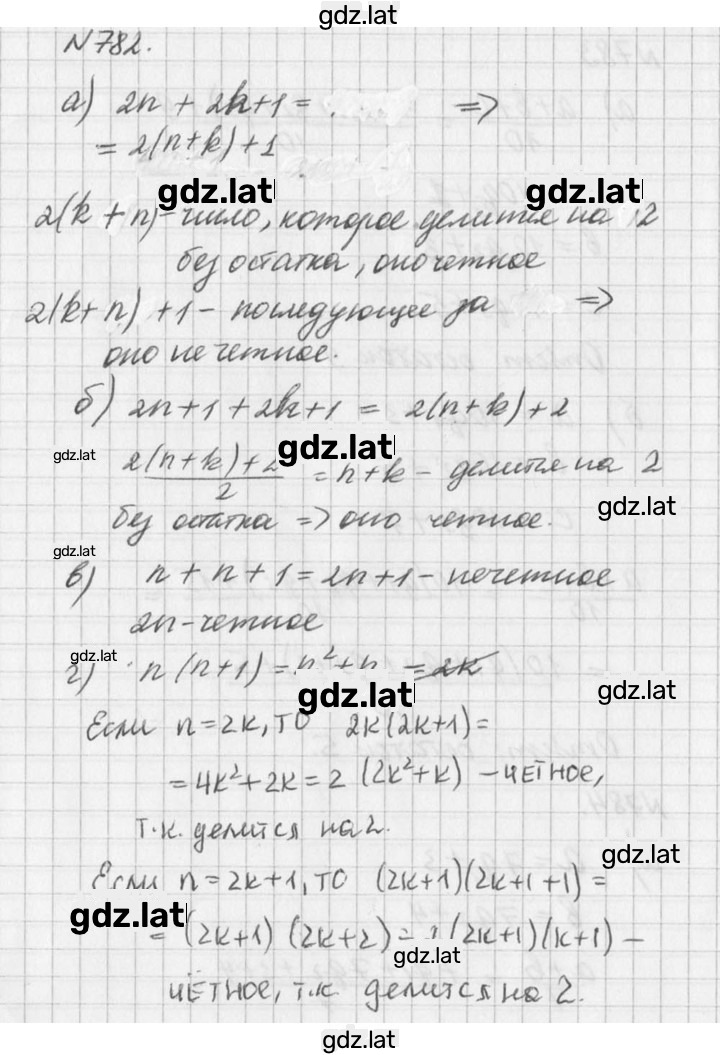 gdz.lat
N782.
а) 2n + 2k+1 = . =>
= 2(n+k)+1
gdz.lat gdz.lat
2(k+n)- число, которое делится на 2
без остатка, оно четное
2(k+n)+1 - последующее за =>
оно нечетное.
б) 2n+1+2k+1 = 2(n+k)+2
gdz.lat
gdz.lat
2(n+k)+2 / 2 = n+k - делится на 2
gdz.lat
без остатка => оно четное.
gdz.lat
в) n+n+1=2n+1 - нечетное
2n-четное
gdz.lat
г) n(n+1)=n²+n =2k
gdz.lat gdz.lat
Если n=2k, ТО 2k(2k+1)=
=4k²+2k=2(2k²+k) - чЕТНОЕ,
Т.К. делится на 2.
gdz.lat
Если n=2k+1, ТО (2k+1)(2k+1+1)=
gdz.lat
= (2k+1)(2k+2)= (2k+1)(k+1) -
gdz.lat
чЕТНОЕ, т.к делится на 2.
gdz.lat